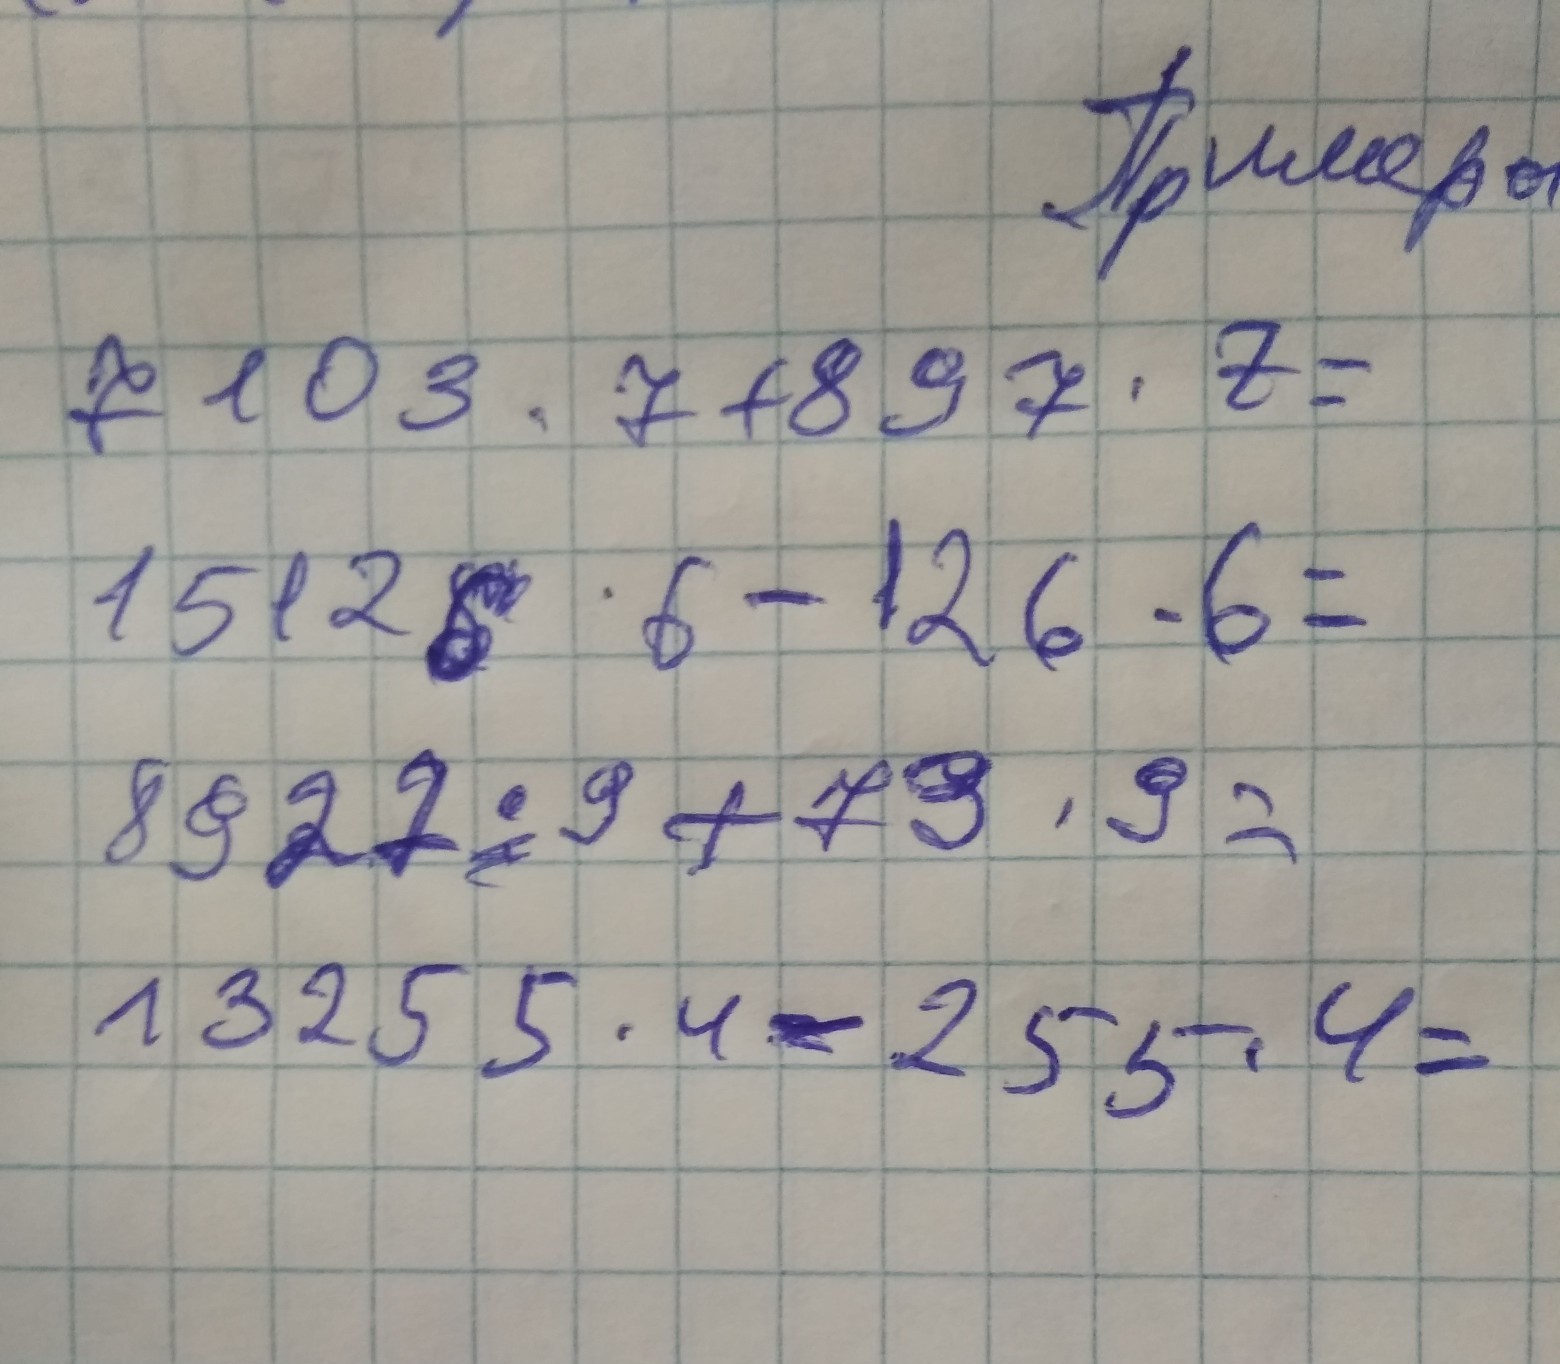 Примеры
7103 · 7 + 897 · 7 =
15126 · 6 - 126 · 6 =
8927 : 9 + 73 · 9 =
13255 · 4 - 255 · 4 =